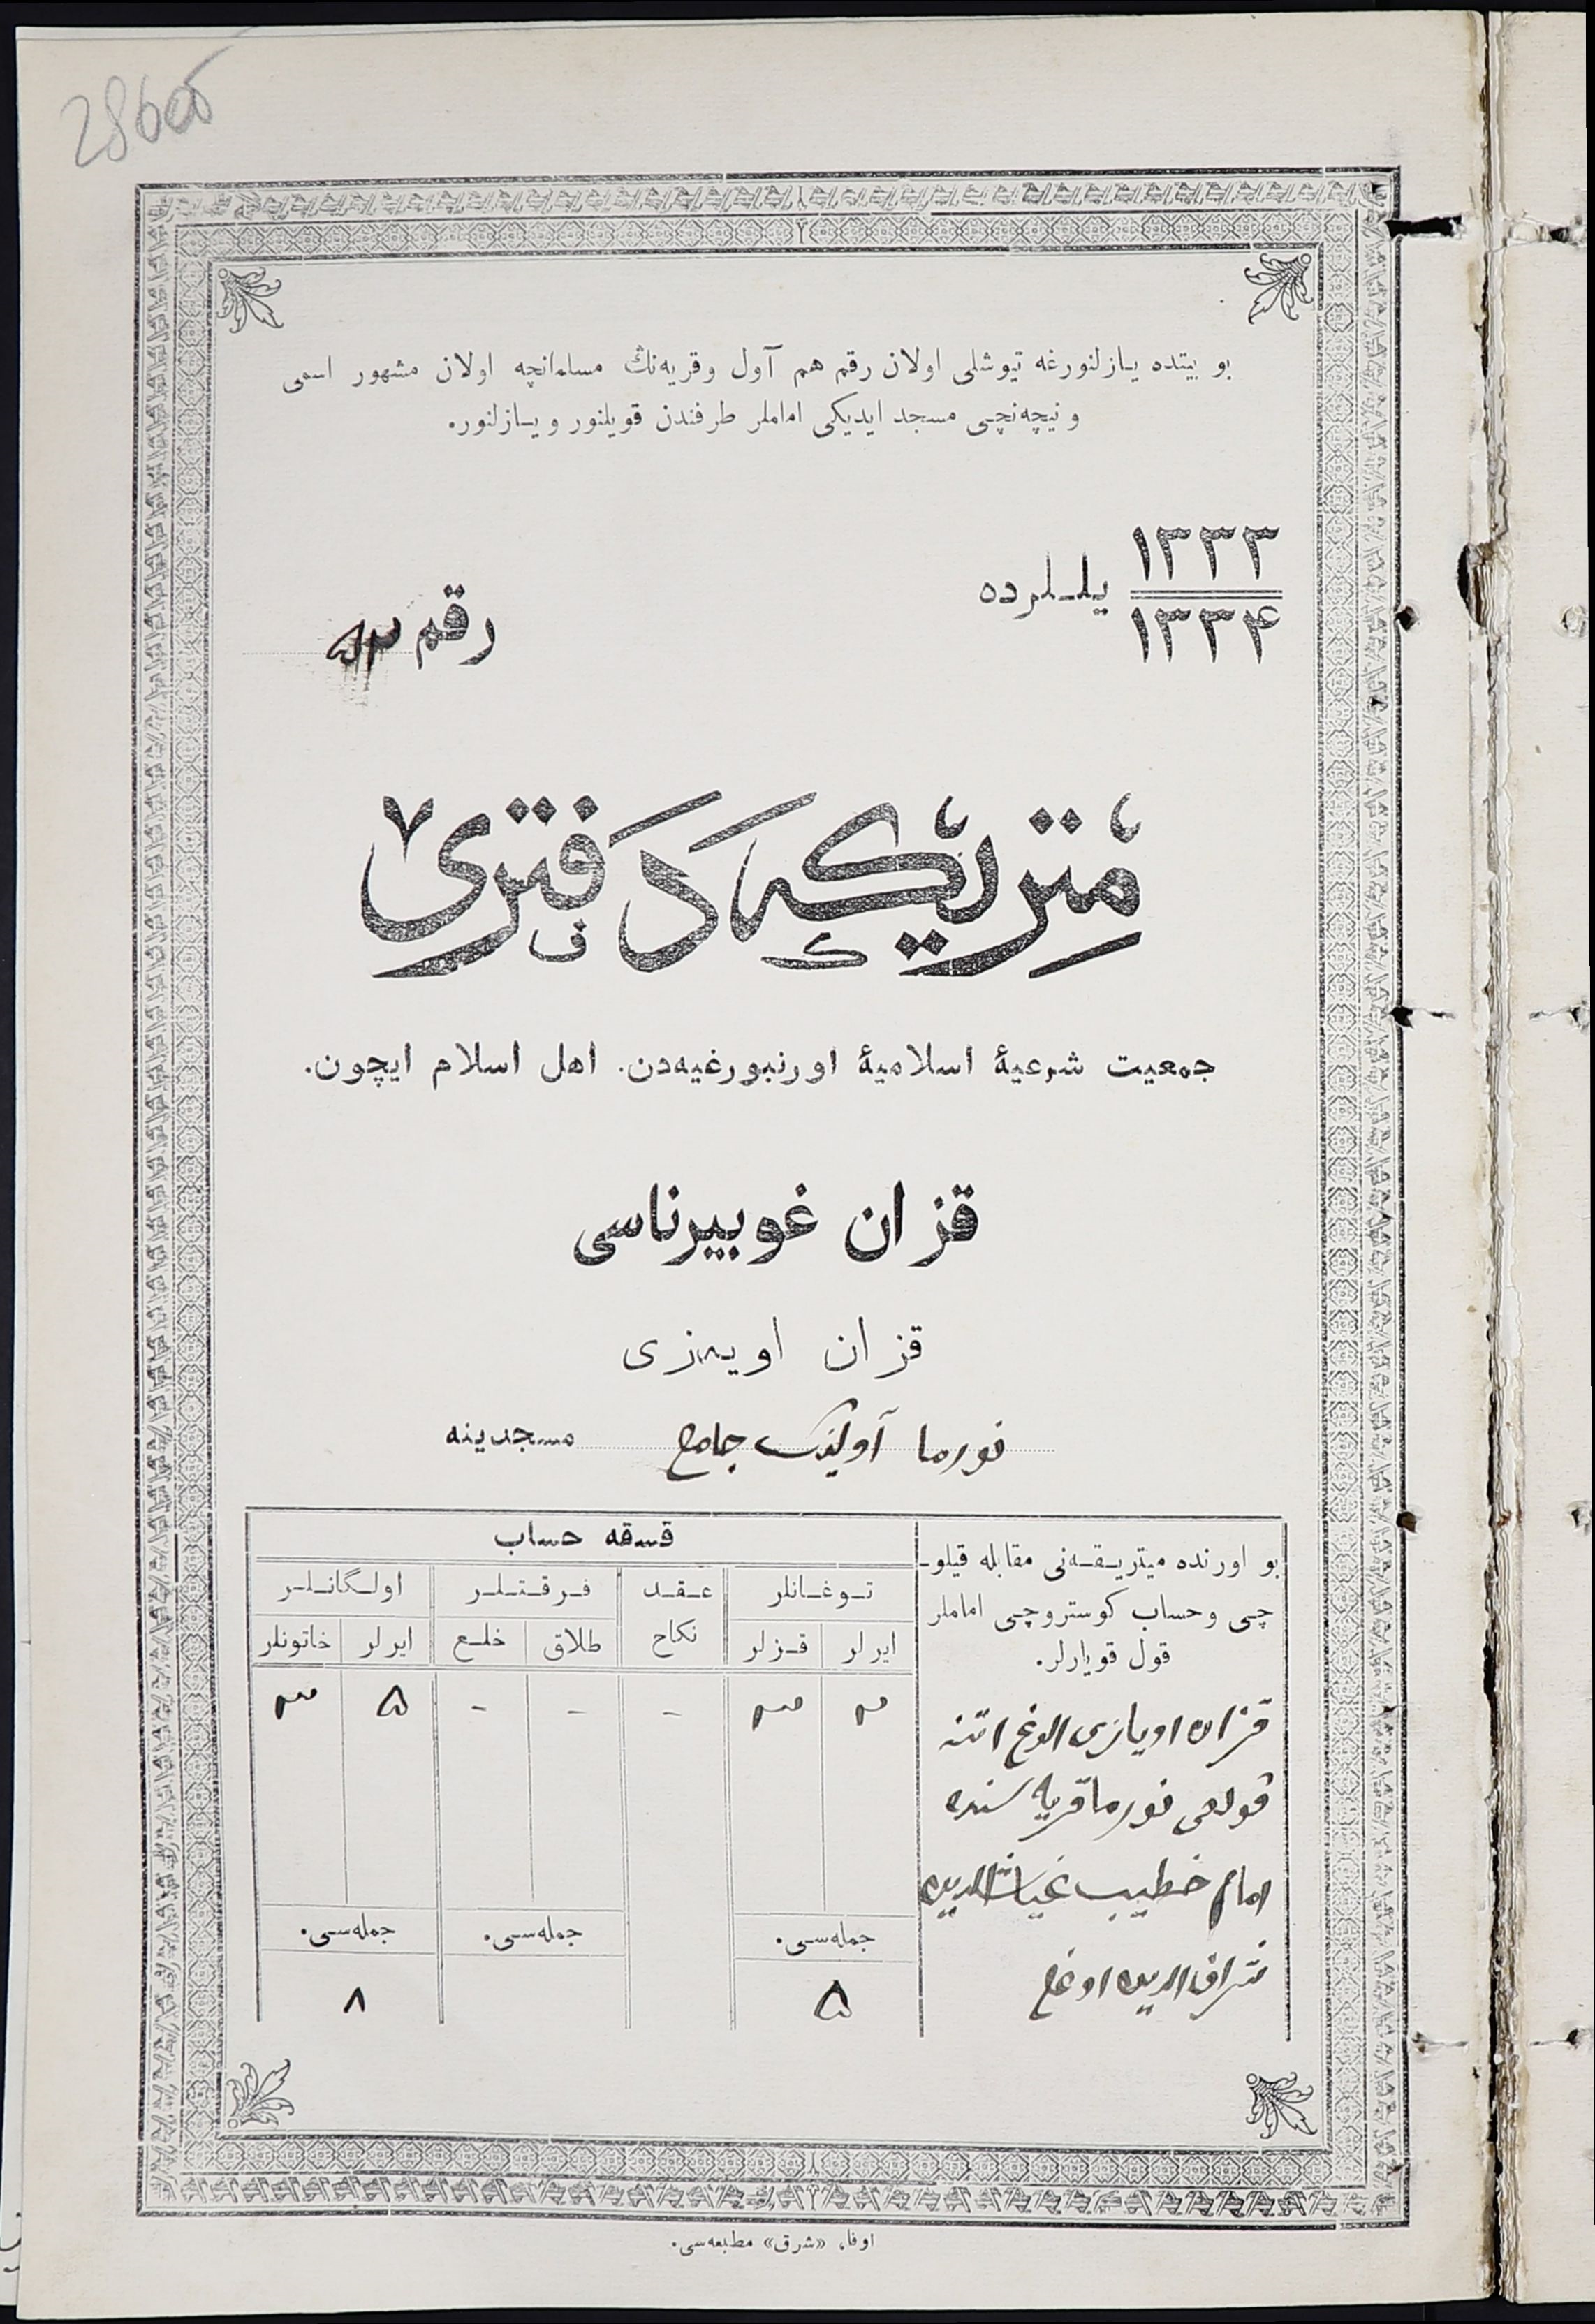 286об
بو بیتده یازلنورغه تیوشلی اولان رقم هم آول وقریه‌نڭ مسلمانچه اولان مشهور اسمی
و نیچه‌نچی مسجد ایدیکی اماملر طرفندن قویلنور و یازلنور.
۱۳۳۳
۱۳۳۴
یللرده
رقم
متریکه دفتری
جمعیت شرعیهٔ اسلامیهٔ اورنبورغیه‌دن. اهل اسلام ایچون.
قزان غوبیرناسی
قزان اویه‌زی
نورما آولینڭ جامع مسجدینه
بو اورنده میتریقه‌نی مقابله قیلو-
چی وحساب کوستروچی اماملر
قول قویارلر.
قزان اویازی الوغ اتنه
نورما قریه سنده
امام خطیب غیاث الدین
شراف الدین اوغلی
قسقه حساب
توغانلر
عقد
نکاح
فرقتلر
اولگانلر
ایرلر
قزلر
طلاق
خلع
ایرلر
خاتونلر
۲
۳
-
-
-
۵
۳
جمله‌سی.
جمله‌سی.
جمله‌سی.
۵
۸
اوفا، «شرق» مطبعه‌سی.